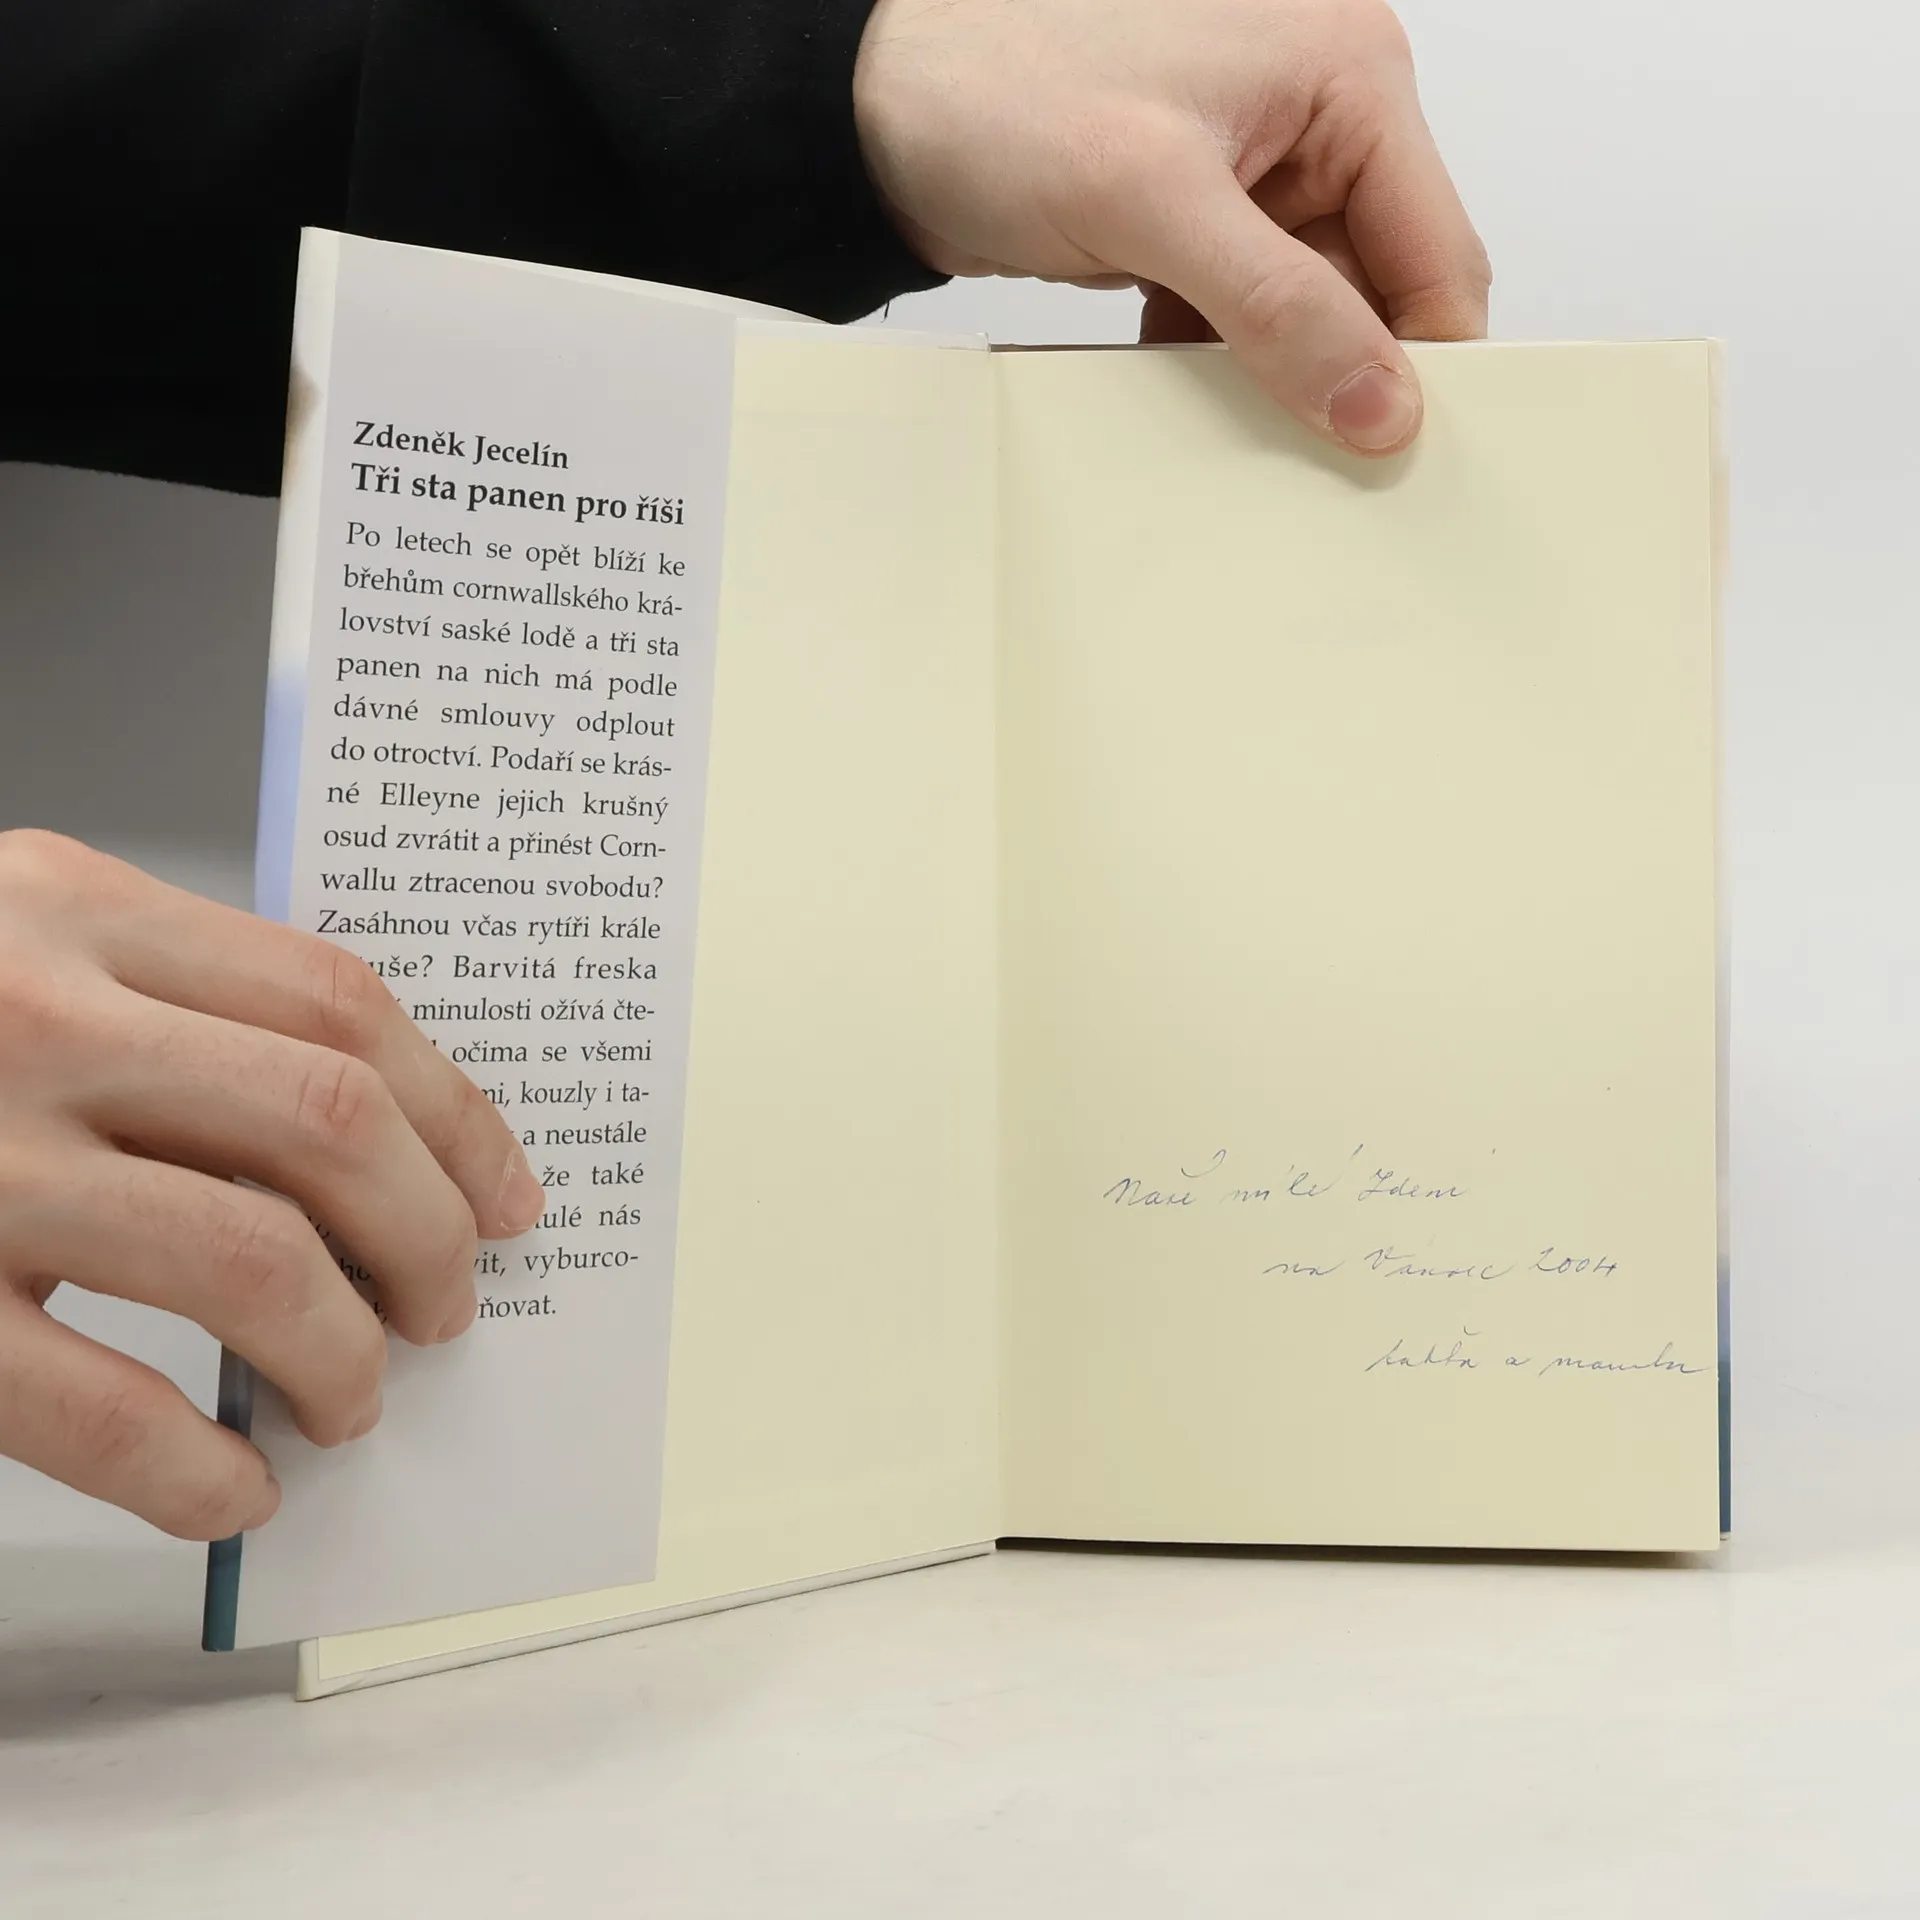 Zdeněk Jecelín
Tři sta panen pro říši
Po letech se opět blíží ke
břehům cornwallského krá-
lovství saské lodě a tři sta
panen na nich má podle
dávné smlouvy odplout
do otroctví. Podaří se krás-
né Elleyne jejich krušný
osud zvrátit a přinést Corn-
wallu ztracenou svobodu?
Zasáhnou včas rytíři krále
uše? Barvitá freska
minulosti ožívá čte-
očima se všemi
mi, kouzly i ta-
a neustále
že také
ulé nás
vit, vyburco-
ňovat.
Naší milé Zdeni
na Vánoce 2004
taťka a mamka